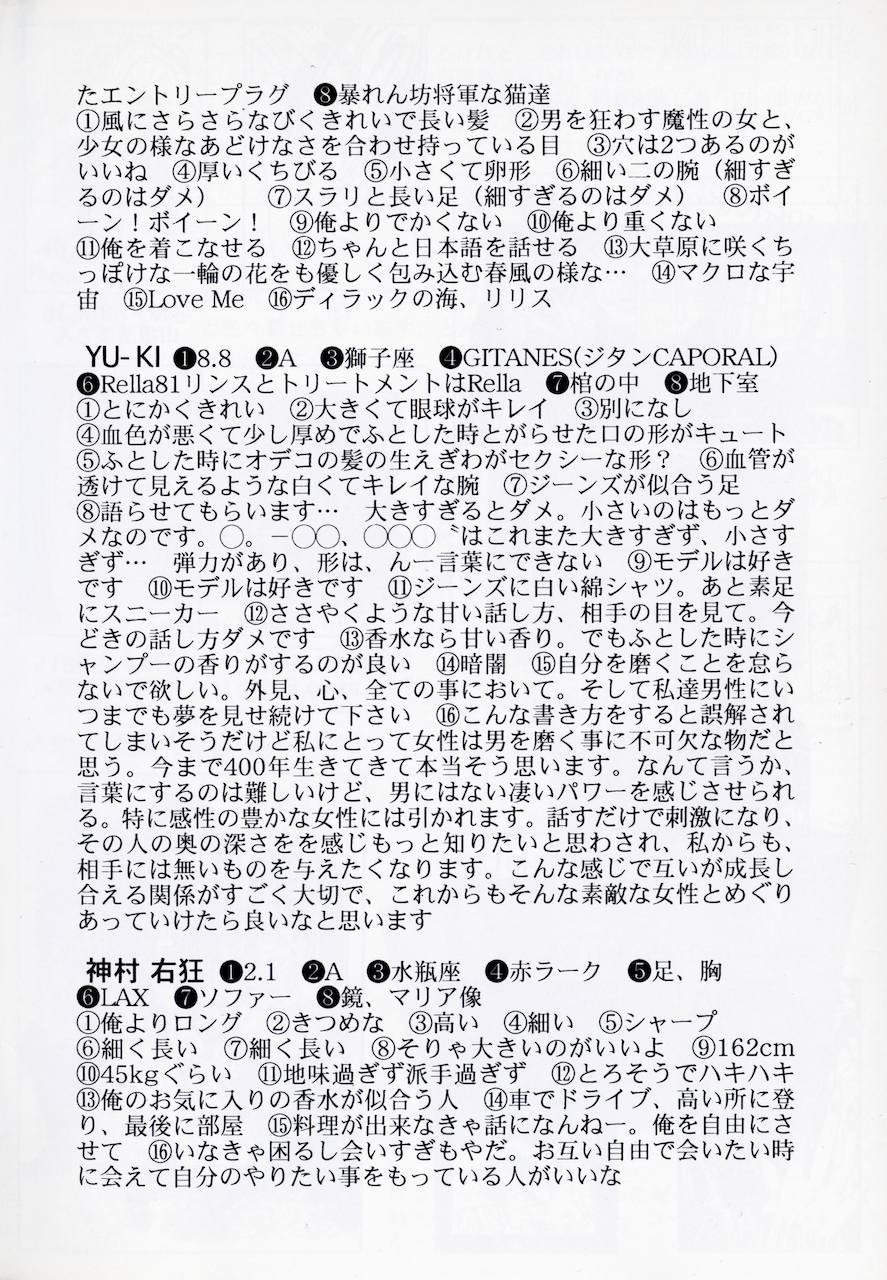 たエントリープラグ　❽暴れん坊将軍な猫達
①風にさらさらなびくきれいで長い髪　②男を狂わす魔性の女と、
少女の様なあどけなさを合わせ持っている目　③穴は2つあるのが
いいね　④厚いくちびる　⑤小さくて卵形　⑥細い二の腕（細すぎ
るのはダメ）　　⑦スラリと長い足（細すぎるのはダメ）　⑧ボイ
ーン！ボイーン！　⑨俺よりでかくない　⑩俺より重くない
⑪俺を着こなせる　⑫ちゃんと日本語を話せる　⑬大草原に咲くち
っぽけな一輪の花をも優しく包み込む春風の様な…　⑭マクロな宇
宙　⑮Love Me　⑯ディラックの海、リリス
YU-KI ❶8.8　❷A　❸獅子座　❹GITANES(ジタンCAPORAL)
❻Rella81リンスとトリートメントはRella　❼棺の中　❽地下室
①とにかくきれい　②大きくて眼球がキレイ　③別になし
④血色が悪くて少し厚めでふとした時とがらせた口の形がキュート
⑤ふとした時にオデコの髪の生えぎわがセクシーな形？　⑥血管が
透けて見えるような白くてキレイな腕　⑦ジーンズが似合う足
⑧語らせてもらいます…　大きすぎるとダメ。小さいのはもっとダ
メなのです。◯。－◯◯、◯◯◯〝はこれまた大きすぎず、小さす
ぎず…　弾力があり、形は、んー言葉にできない　⑨モデルは好き
です　⑩モデルは好きです　⑪ジーンズに白い綿シャツ。あと素足
にスニーカー　⑫ささやくような甘い話し方、相手の目を見て。今
どきの話し方ダメです　⑬香水なら甘い香り。でもふとした時にシ
ャンプーの香りがするのが良い　⑭暗闇　⑮自分を磨くことを怠ら
ないで欲しい。外見、心、全ての事において。そして私達男性にい
つまでも夢を見せ続けて下さい　⑯こんな書き方をすると誤解され
てしまいそうだけど私にとって女性は男を磨く事に不可欠な物だと
思う。今まで400年生きてきて本当そう思います。なんて言うか、
言葉にするのは難しいけど、男にはない凄いパワーを感じさせられ
る。特に感性の豊かな女性には引かれます。話すだけで刺激になり、
その人の奥の深さをを感じもっと知りたいと思わされ、私からも、
相手には無いものを与えたくなります。こんな感じで互いが成長し
合える関係がすごく大切で、これからもそんな素敵な女性とめぐり
あっていけたら良いなと思います
神村 右狂 ❶2.1　❷A　❸水瓶座　❹赤ラーク　❺足、胸
❻LAX　❼ソファー　❽鏡、マリア像
①俺よりロング　②きつめな　③高い　④細い　⑤シャープ
⑥細く長い　⑦細く長い　⑧そりゃ大きいのがいいよ　⑨162cm
⑩45kgぐらい　⑪地味過ぎず派手過ぎず　⑫とろそうでハキハキ
⑬俺のお気に入りの香水が似合う人　⑭車でドライブ、高い所に登
り、最後に部屋　⑮料理が出来なきゃ話になんねー。俺を自由にさ
せて　⑯いなきゃ困るし会いすぎもやだ。お互い自由で会いたい時
に会えて自分のやりたい事をもっている人がいいな